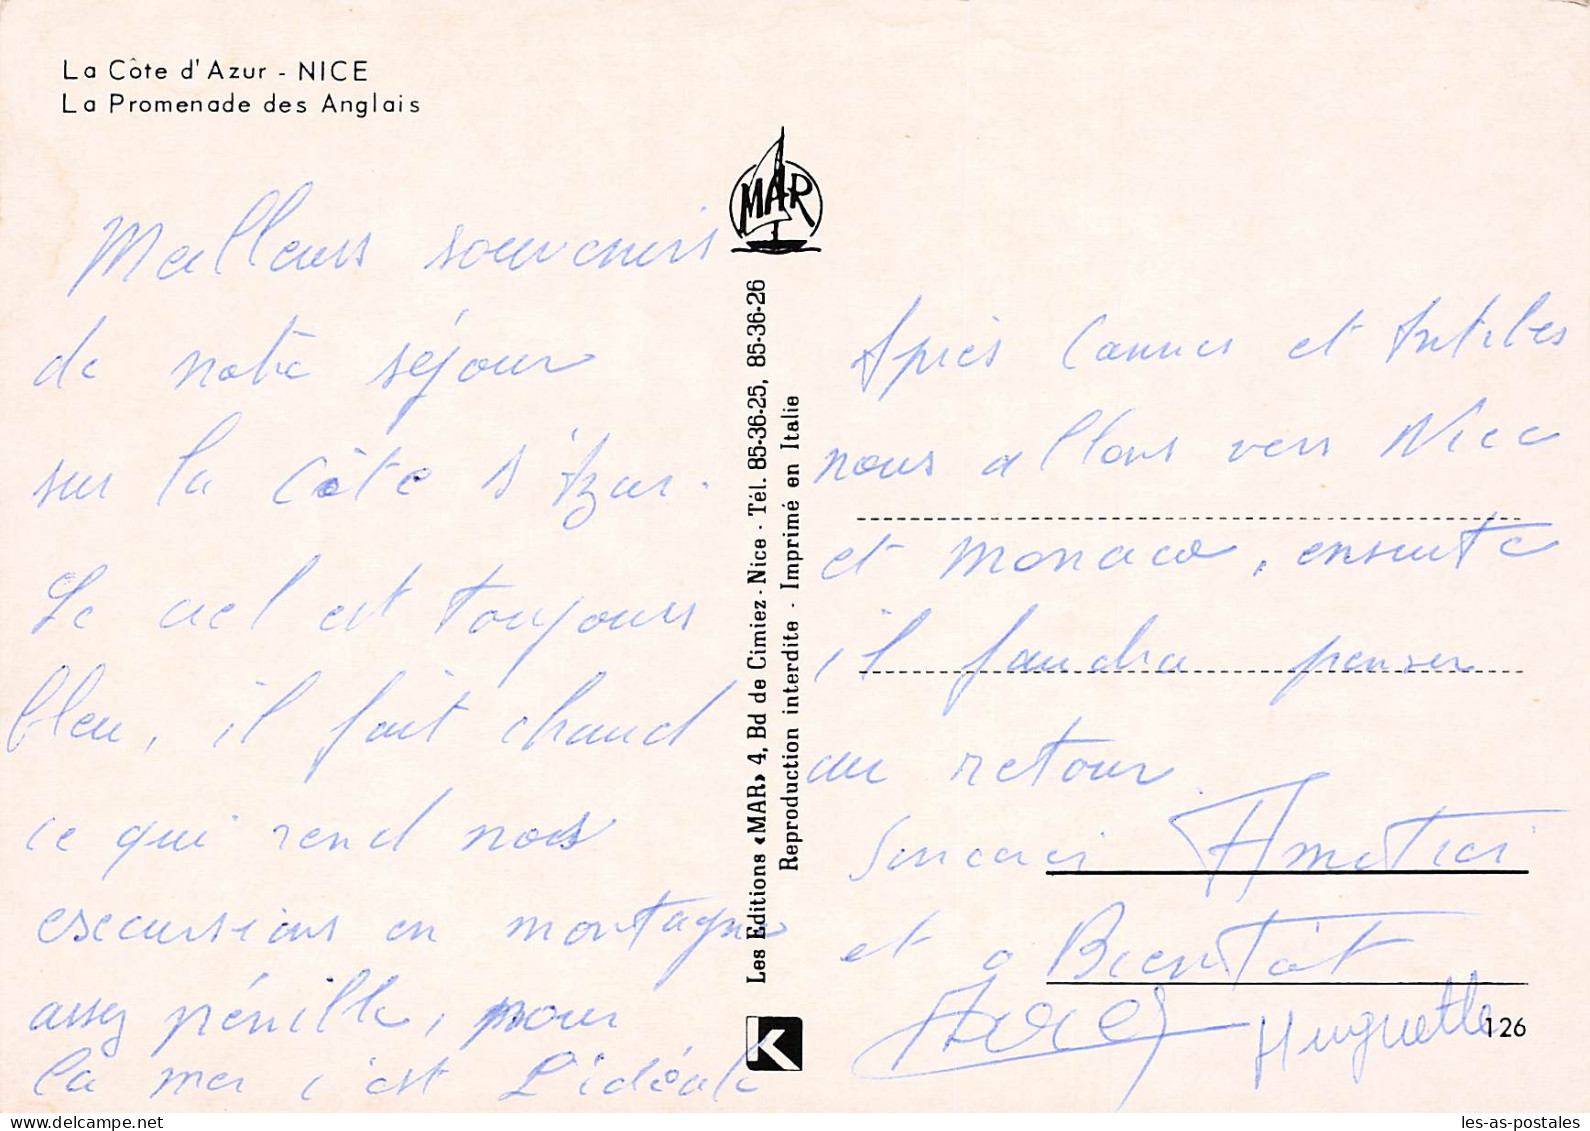 La Côte d'Azur - NICE
La Promenade des Anglais
Meilleurs souvenirs
de notre séjour
sur la Côte d'Azur.
Le ciel est toujours
bleu, il fait chaud
ce qui rend nos
excursions en montagne
assez pénible, pour
la mer c'est l'idéale
MAR
Les Editions «MAR» 4, Bd de Cimiez - Nice - Tél. 85-36-25, 85-36-26
Reproduction interdite - Imprimé en Italie
K
Après Cannes et Antibes
nous allons vers Nice
et Monaco, ensuite
il faudra penser
au retour
Sincères Amitiés
et à Bientôt
Huguette
126
les-as-postales